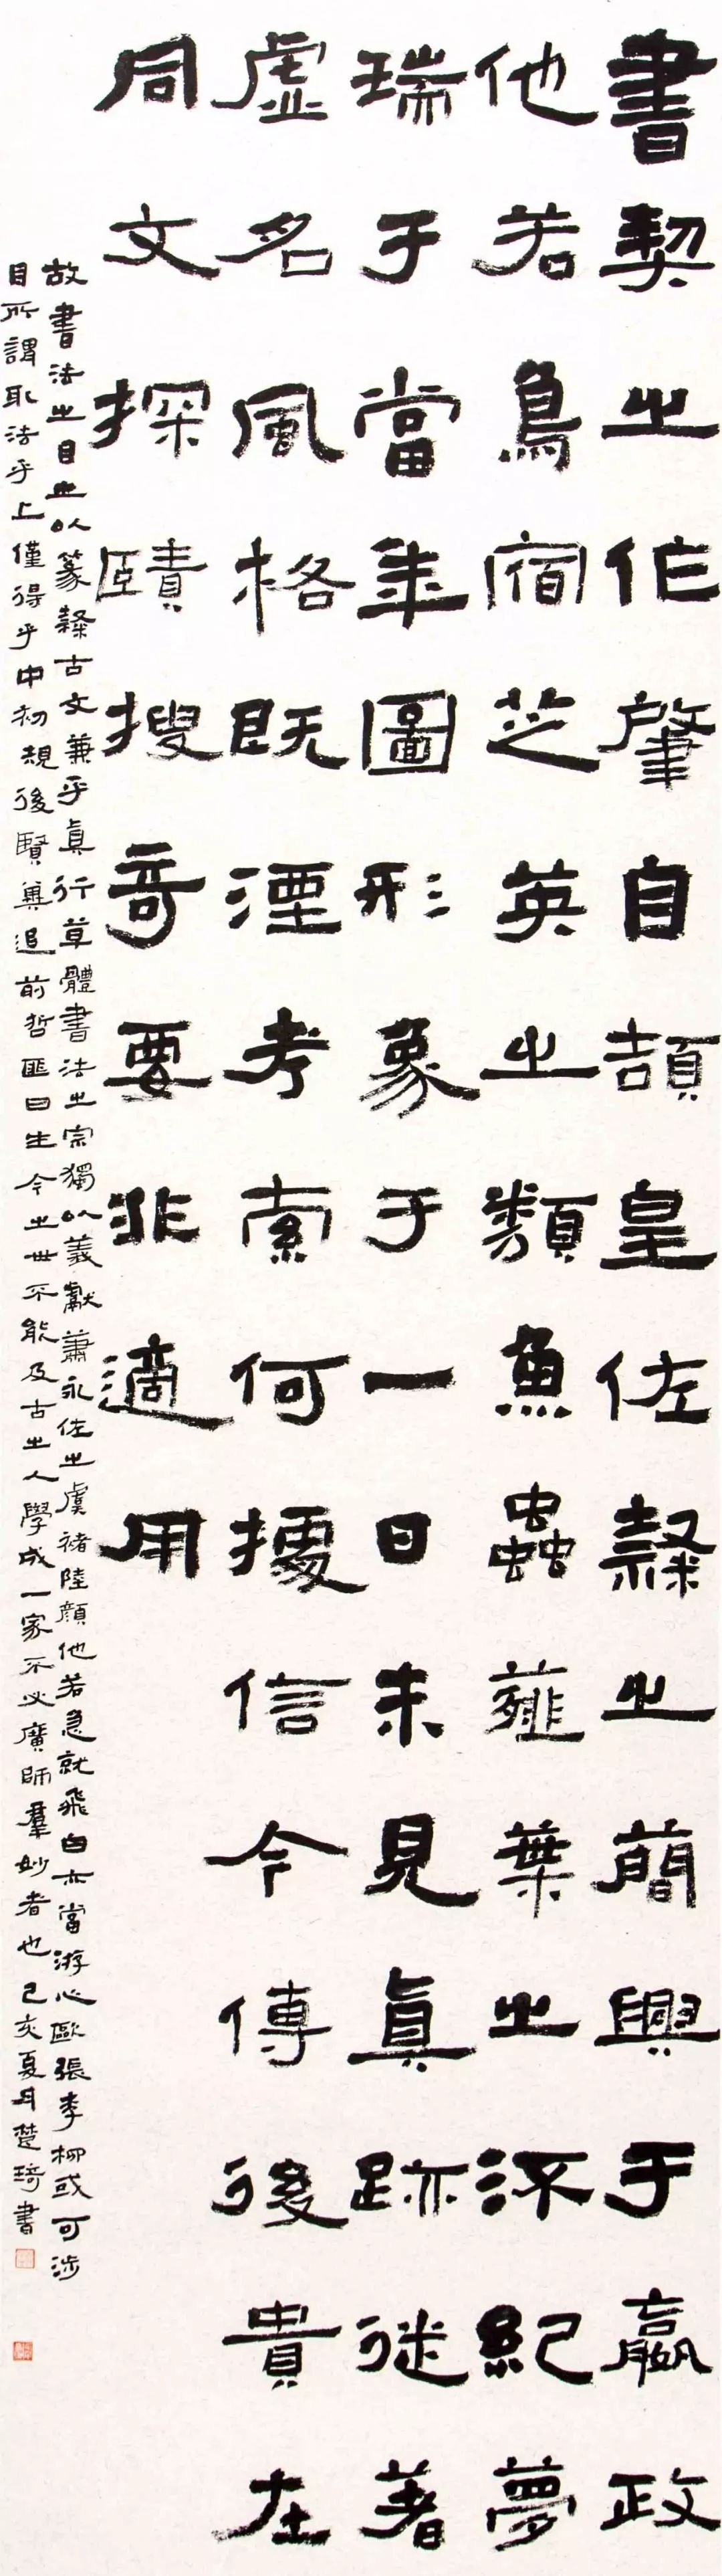 書契之作肇自頡皇佐隸之簡興于嬴政
他若鳥宿芝英之類魚蟲薤葉之流紀夢
瑞于當年圖形象于一日未見真跡徒著
虛名風格既湮考索何據信今傳後貴在
同文探賾搜奇要非適用
故書法之目止以篆隸古文兼乎真行草體書法之宗獨以羲獻蕭永佐之虞褚陸顏他若急就飛白亦當游心歐張李柳或可涉
目所謂取法乎上僅得乎中初規後賢冀追前哲匪曰生今之世不能及古之人學成一家不必廣師羣妙者也己亥夏月楚琦書